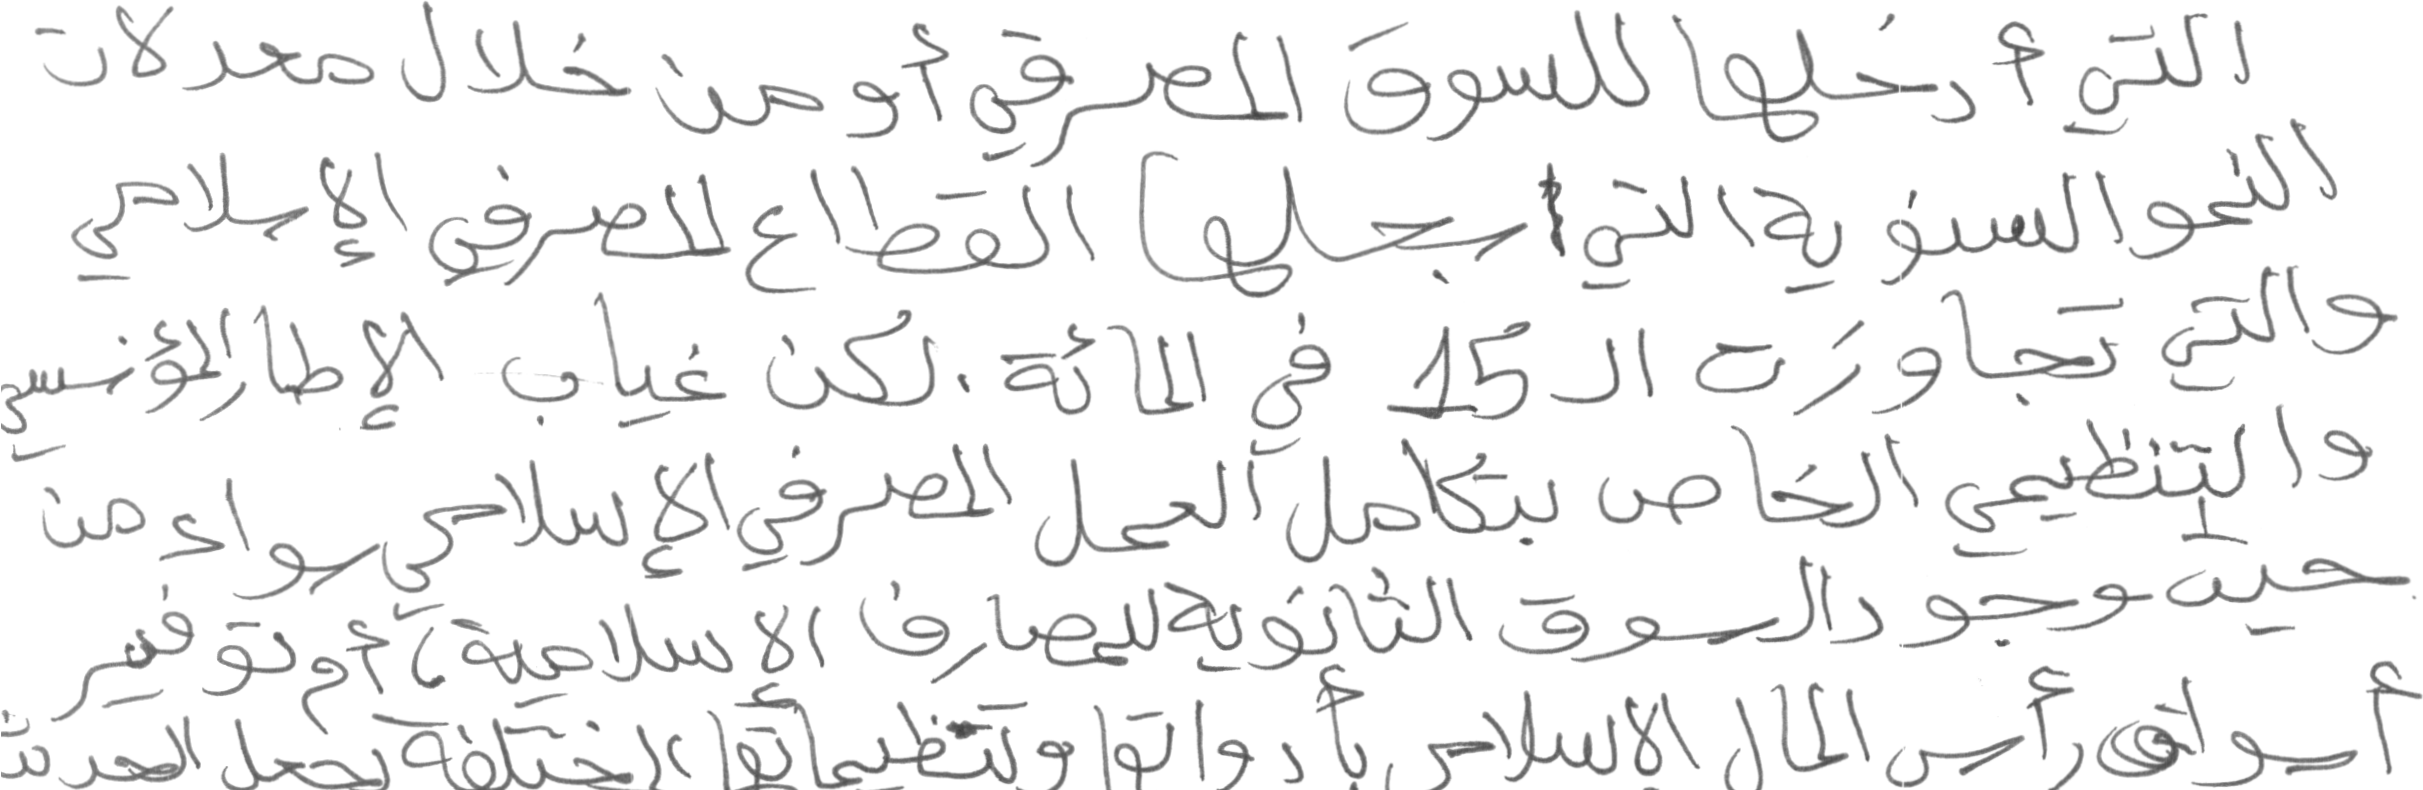 التي أدخلها للسوق المصرفي أو من خلال معدلات
النحو السنوية التي سجلها القطاع المصرفي الإسلامي
والتي تجاوزت الـ 15 في المائة. لكن غياب الإطار المؤسسي
والتنظيمي الخاص بتكامل العمل المصرفي الإسلامي سواء من
حيث وجود السوق الثانوية للمصارف الاسلامية، أم توفير
أسواق رأس المال الإسلامي بأدواتها وتنظيماتها المختلفة يجعل